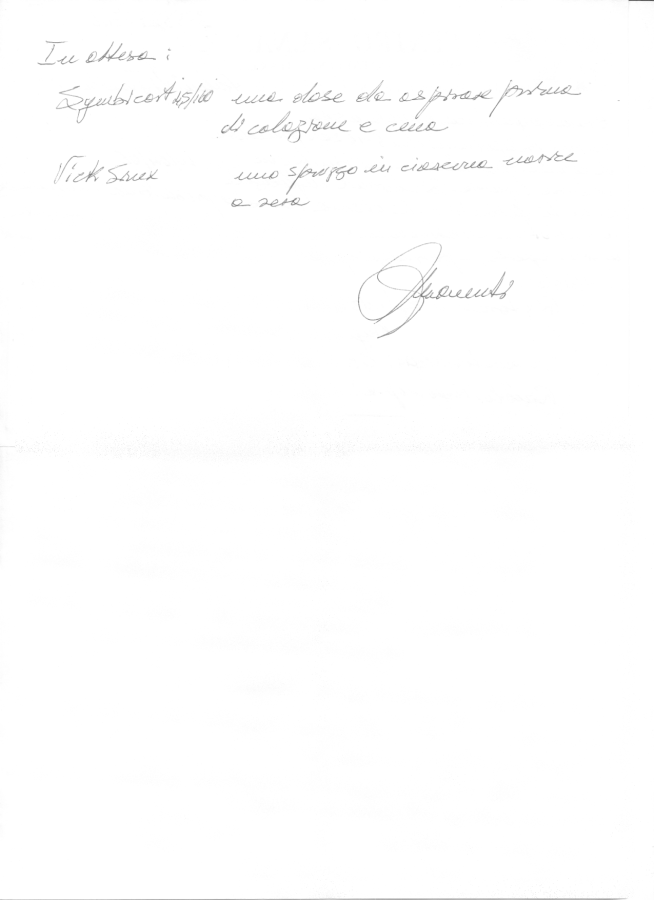 In attesa:
Symbicort 4,5/160 una dose da aspirare prima
di colazione e cena
Vick Sinex uno spruzzo in ciascuna narice
a sera